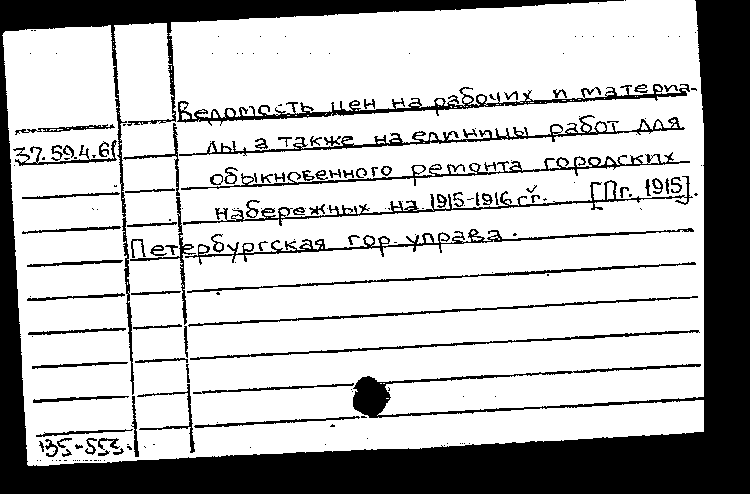 Ведомость цен на рабочих и материа-
37.59.4.61 лы, а также на единицы работ для
обыкновенного ремонта городских
набережных на 1915-1916 г.г. [Пг., 1915].
Петербургская гор. управа.
135-553.